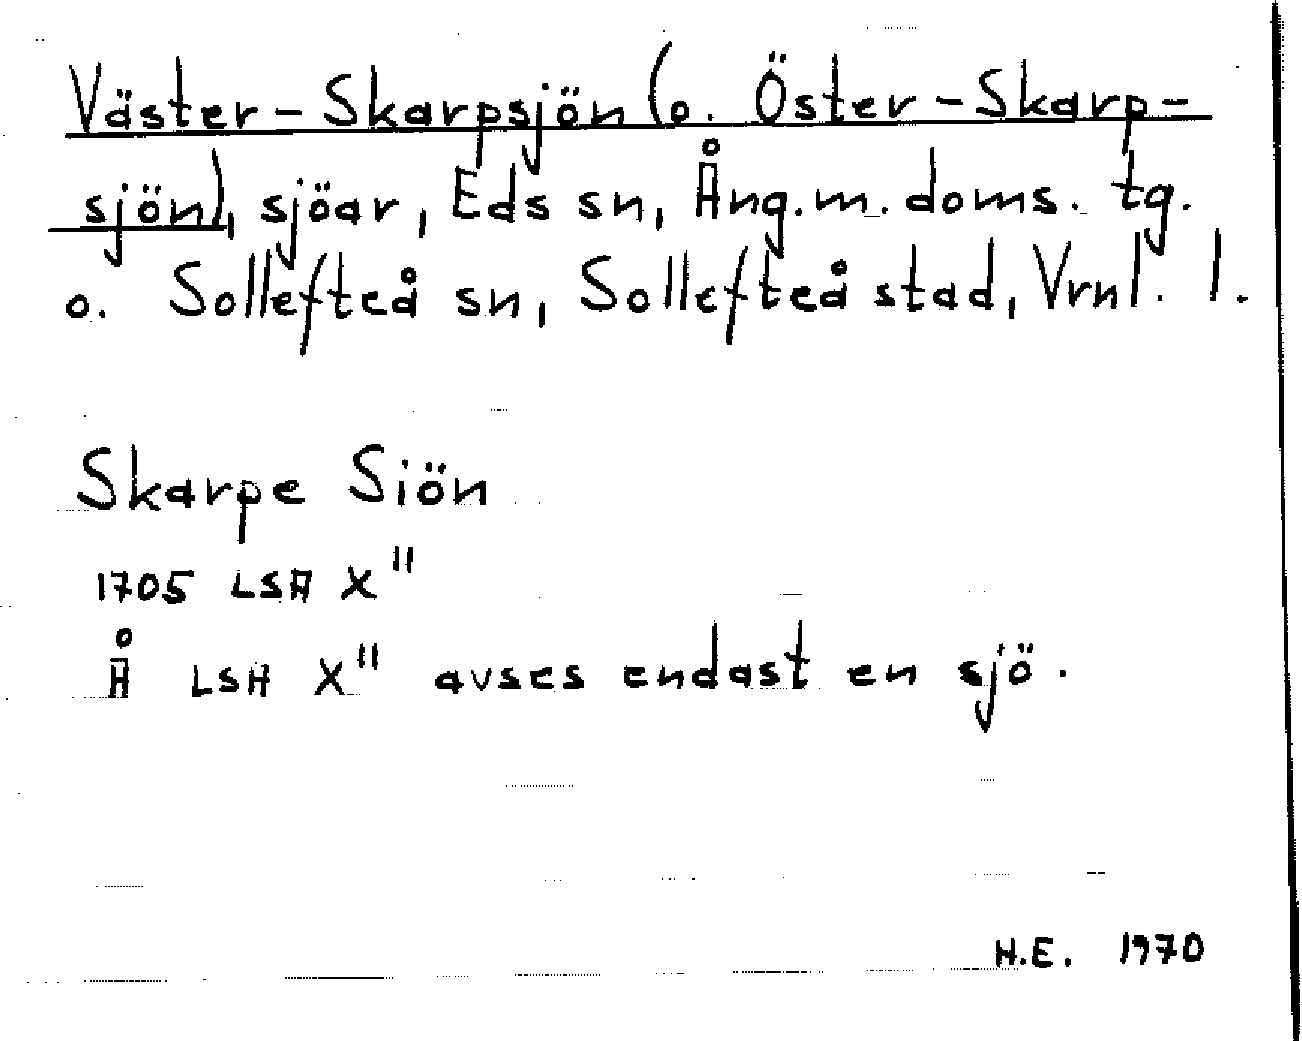 Väster-Skarpsjön (o. Öster-Skarp-
sjön), sjöar, Eds sn, Ång.m. doms. tg.
o. Sollefteå sn, Sollefteå stad, Vrnl. l.
Skarpe Siön
1705 LSA X"
Å LSA X" avses endast en sjö.
H.E. 1970